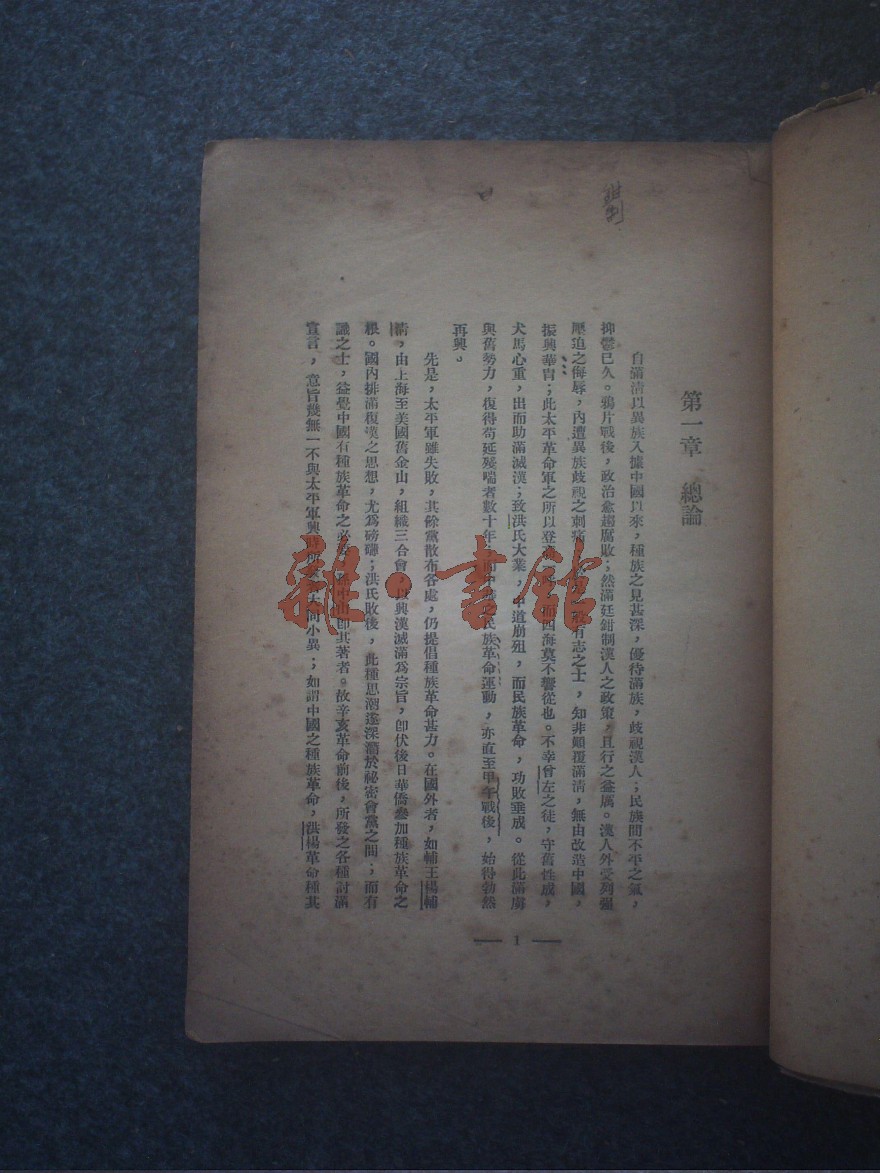 第一章　總論
自滿淸以異族入據中國以來，種族之見甚深，優待滿族，歧視漢人；民族間不平之氣，
抑鬱已久。鴉片戰後，政治愈趨腐敗；然滿廷鉗制漢人之政策，且行之益厲。漢人外受列強
壓迫之侮辱，內遭異族歧視之刺痛，有志之士，知非顚覆滿淸，無由改造中國，
振興華胄；此太平革命軍之所以登高一呼，而四海莫不響從也。不幸曾左之徒，守舊性成，
犬馬心重，出而助滿滅漢；致洪氏大業，中道崩殂，而民族革命，功敗垂成。從此滿虜
與舊勢力，復得苟延殘喘者數十年，而中國之民族革命運動，亦直至甲午戰後，始得勃然
再興。
先是，太平軍雖失敗，其餘黨散布各處，仍提倡種族革命甚力。在國外者，如輔王楊輔
淸，由上海至美國舊金山，組織三合會，以興漢滅滿爲宗旨，卽伏後日華僑參加種族革命之
根。國內排滿復漢之思想，尤爲磅礴；洪氏敗後，此種思潮遂深瀦於祕密會黨之間；而有
識之士，益覺中國有種族革命之必要，孫中山卽其著者。故辛亥革命前後，所發之各種討滿
宣言，意旨幾無一不與太平軍興時所發者大同小異；如謂中國之種族革命，洪楊革命種其
— 1 —
雜·書館